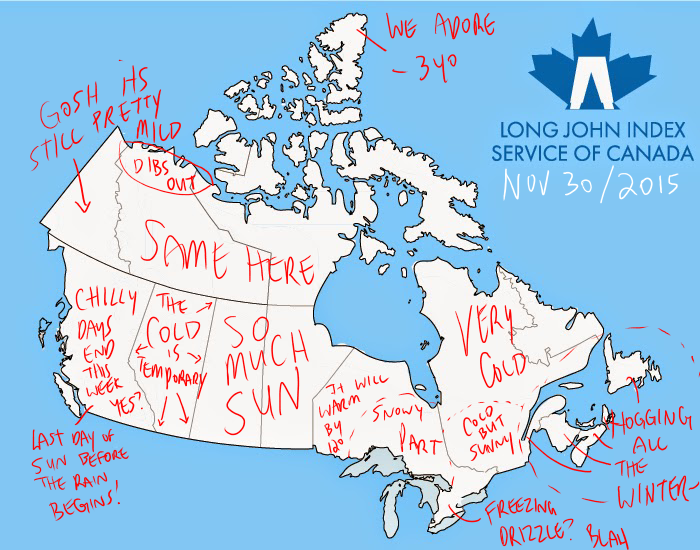 WE ADORE
-340
LONG JOHN INDEX
SERVICE OF CANADA
NOV 30/2015
GOSH ITS
STILL PRETTY
MILD
DIBS
OUT
SAME HERE
CHILLY
DAYS
END
THIS
WEEK
YES?
THE
COLD
IS
TEMPORARY
SO
MUCH
SUN
IT WILL
WARM
BY
120
SNOWY
PART
VERY
COLD
COLD
BUT
SUNNY!
HOGGING
ALL
THE
WINTER-
LAST DAY OF
SUN BEFORE
THE RAIN
BEGINS!
FREEZING
DRIZZLE? BLAH